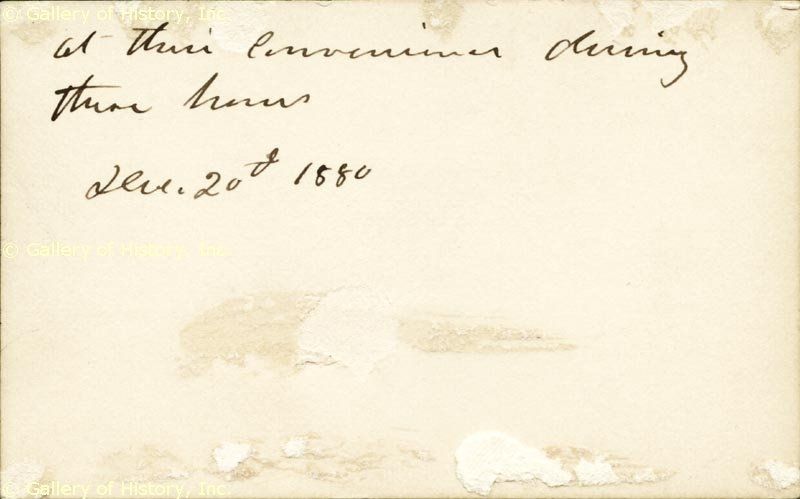 © Gallery of History, Inc.
at their convenience during
these hours
Dec. 20th 1880
© Gallery of History, Inc.
© Gallery of History, Inc.